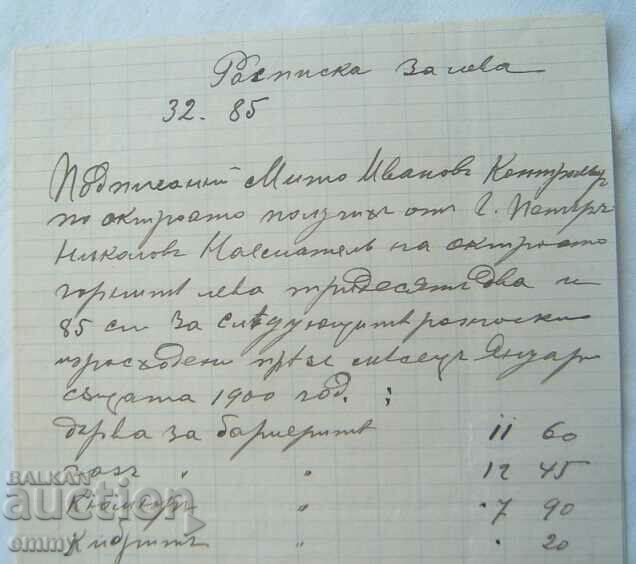 Расписка за лева
32. 85
Подписаний Мито Ивановъ Контрольор
по октроато получихъ отъ Г. Петъръ
Николовъ Наемателъ на октроато
горнитѣ лева тридесятъ два и
85 ст за слѣдующитѣ разноски
израсходени прѣзъ месецъ Януари
същата 1900 год. :
дърва за бариеритѣ 11 60
газъ " " 12 45
Кюмюръ " 7 90
Кибритъ " . 20
BALKAN
auction
emmy